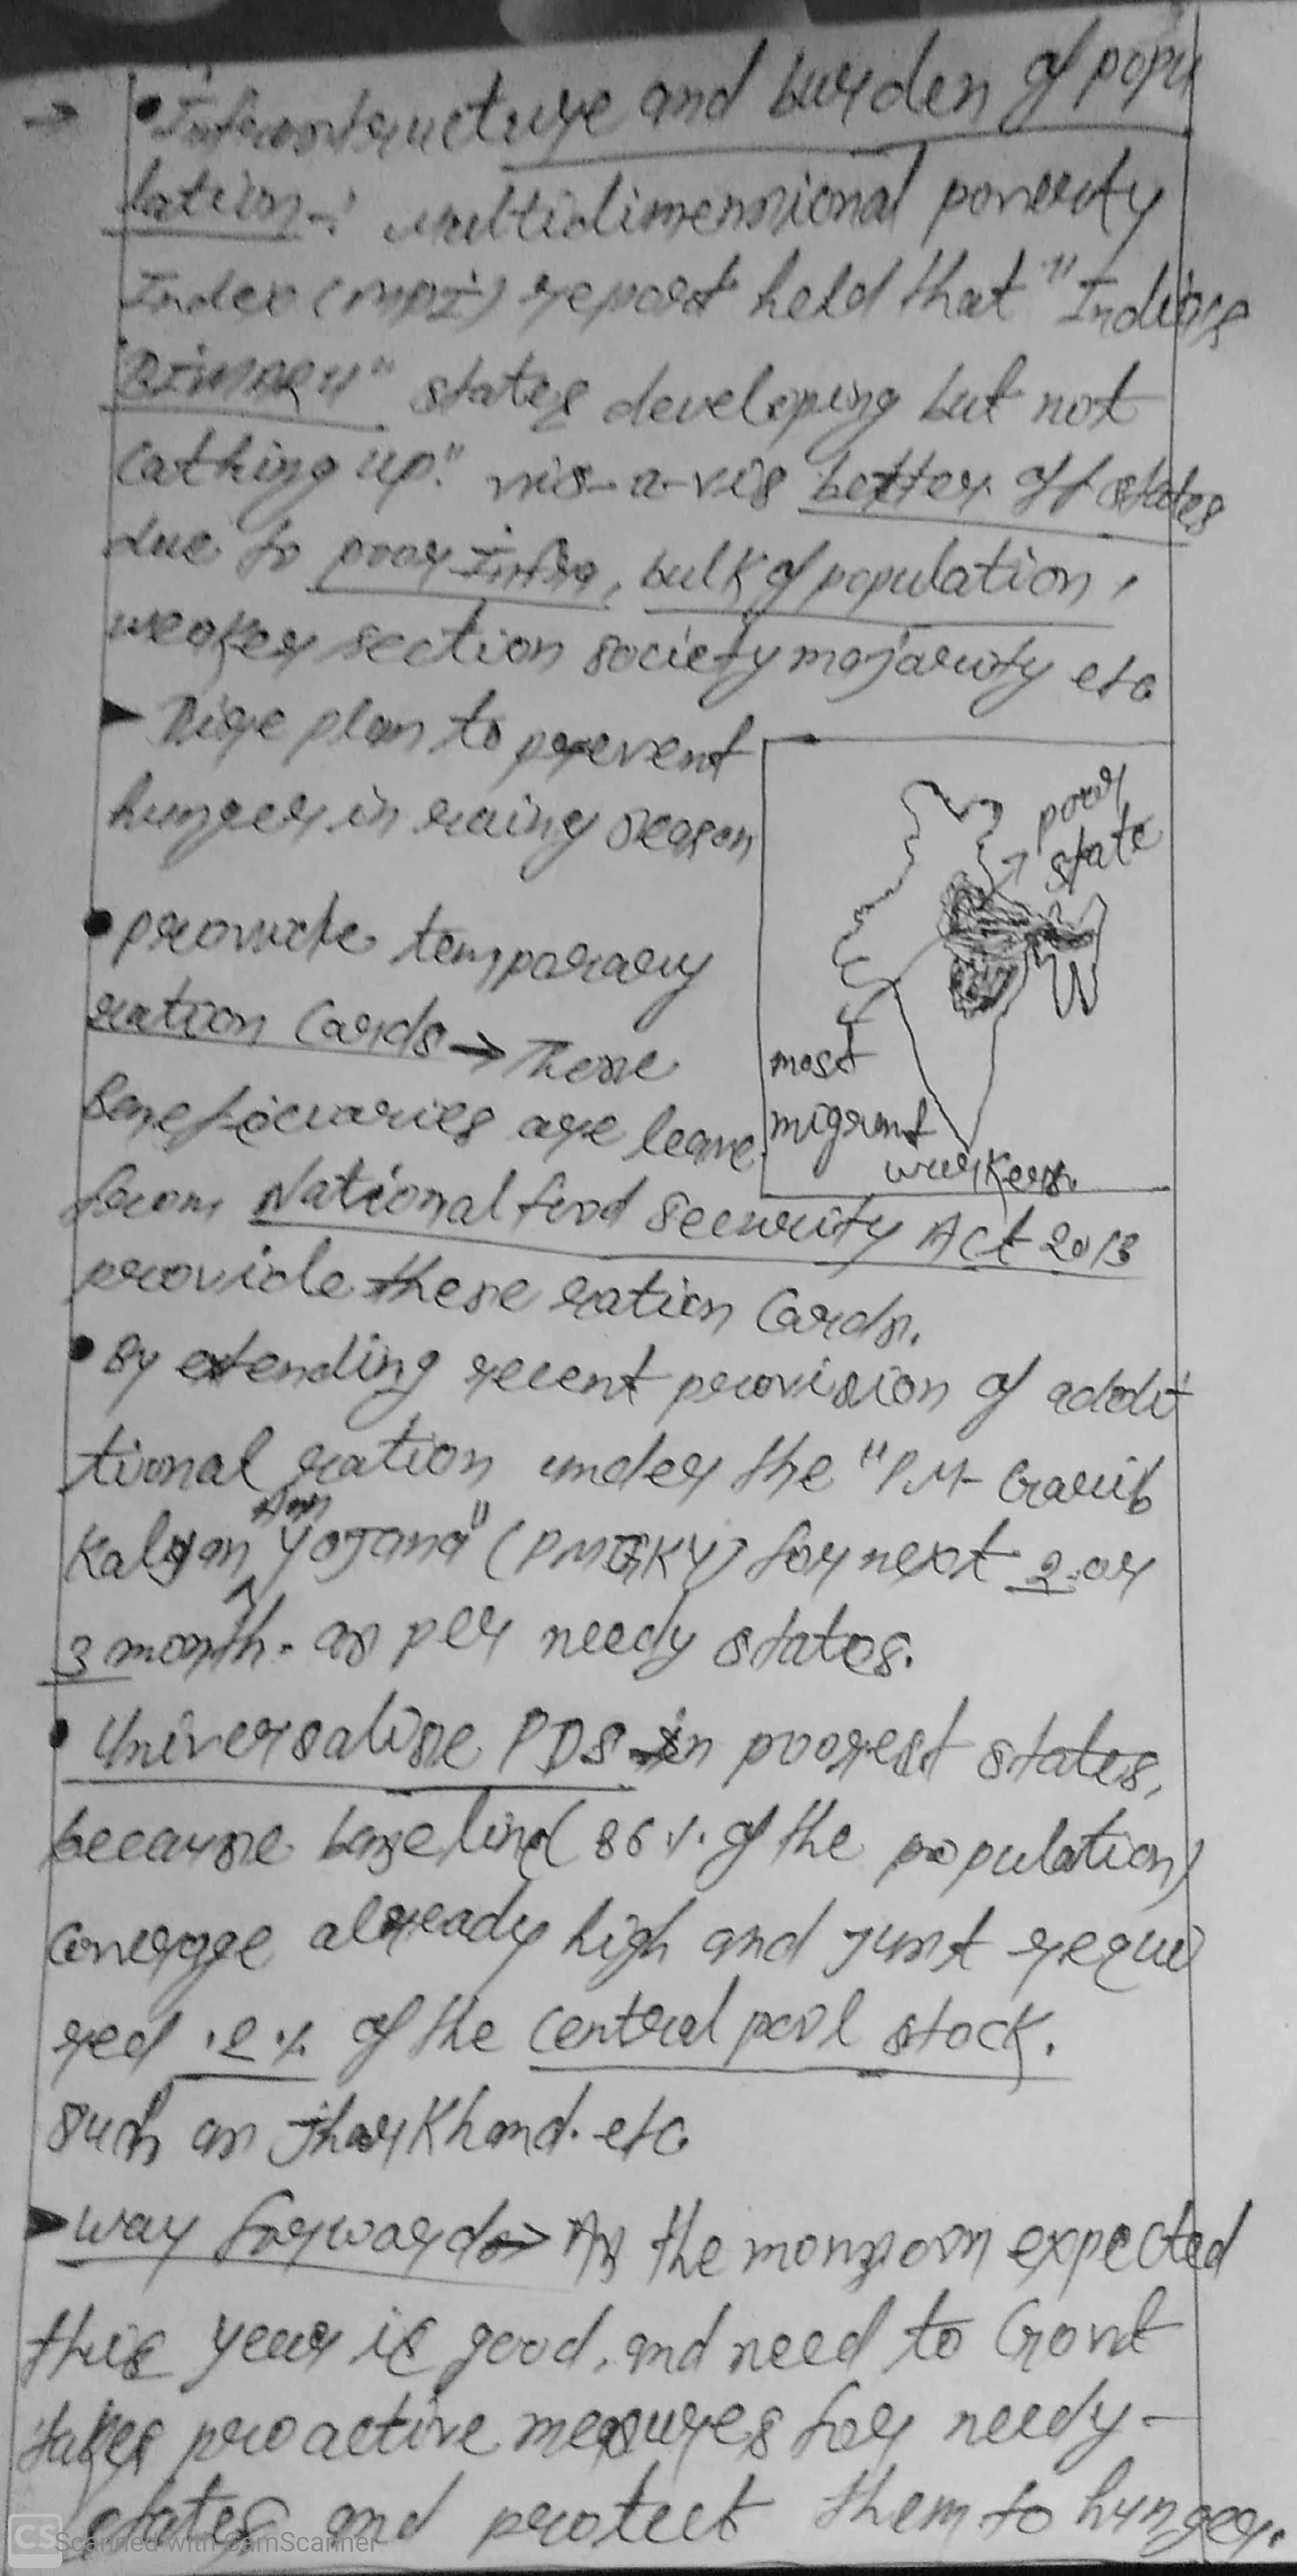 → • Infrastructure and burden of popu
lation -: Multidimensional poverty
Index (MPI) report held that "India's
"BIMARU" states developing but not
cathing up." vis-a-vis better off states
due to poor Infra, bulk of population,
weaker section society majority etc
▸ Rice plan to prevent
hunger in rainy season
poor
state
most
migrant
workers.
• provide temporary
ration Cards → These
Beneficiaries are leave
from National food Security Act 2013
provide these ration Cards.
• By extending recent provision of addit
tional ration under the "PM- Garib
Kalyan Ann Yojana" (PMGKY) for next 2 or
3 month. as per needy states.
• Universalise PDS in poorest states,
because baseline (86 %. of the population)
Coverage already high and just requi
red .2 % of the Central pool stock.
Such as Jharkhand. etc
▸ way forward → As the monsoon expected
this year is good, and need to Govt
takes proactive measures for needy -
states and protect them to hunger.
CS Scanned with CamScanner